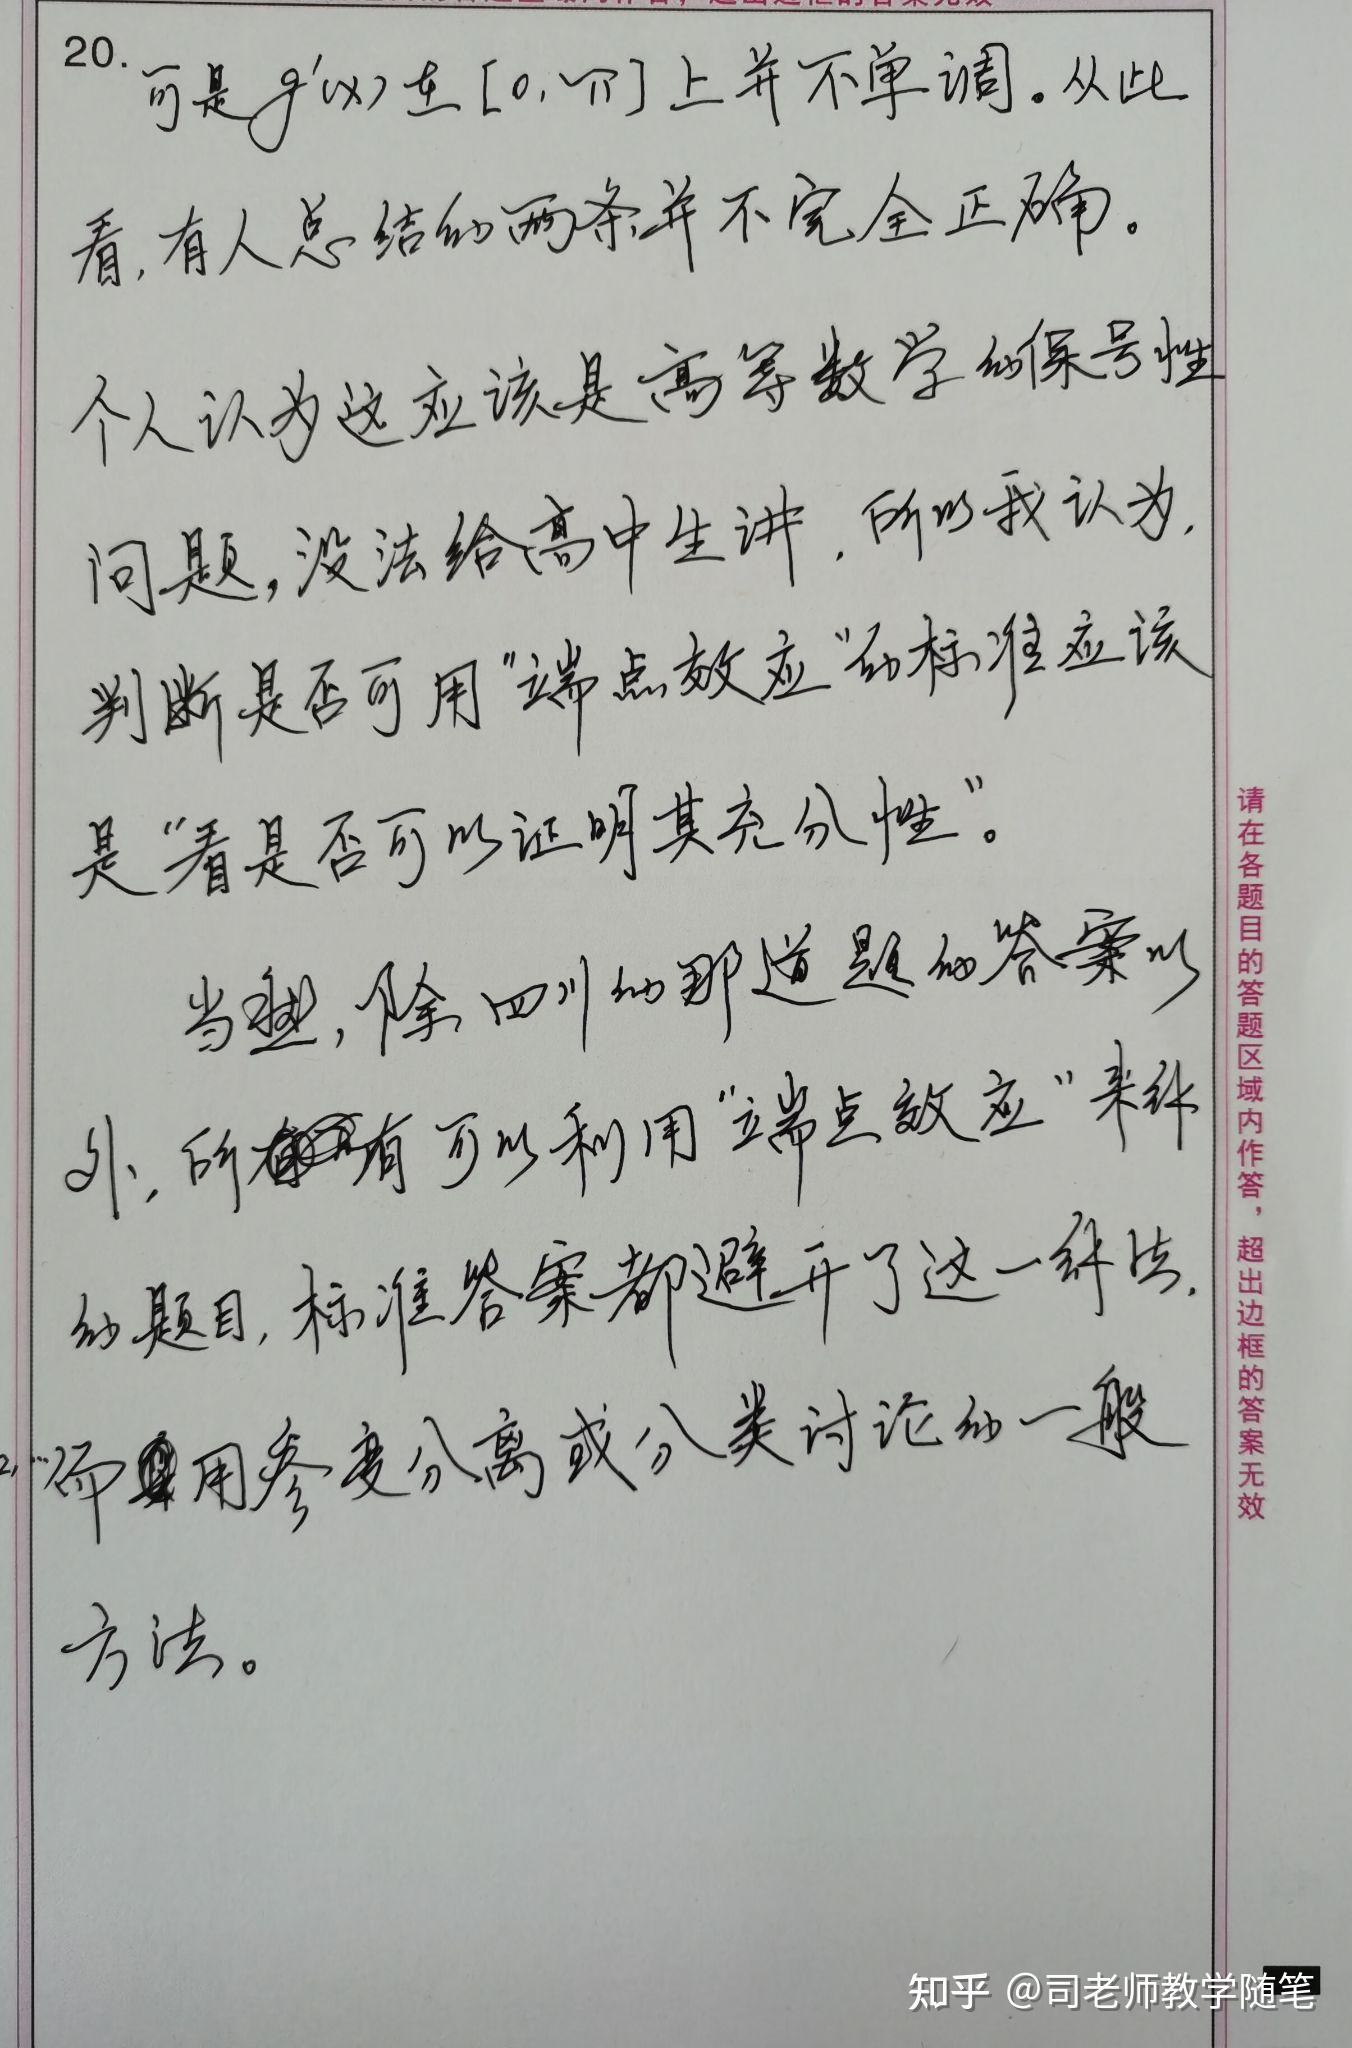 20.
可是g'(x)在[0,π]上并不单调。从此
看,有人总结的两条并不完全正确。
个人认为这应该是高等数学的保号性
问题,没法给高中生讲,所以我认为,
判断是否可用"端点效应"的标准应该
是"看是否可以证明其充分性"。
当然,除四川的那道题的答案以
外,所有可以利用"端点效应"来解
的题目,标准答案都避开了这一解法,
而用参变分离或分类讨论的一般
方法。
请在各题目的答题区域内作答,超出边框的答案无效
知乎 @司老师教学随笔